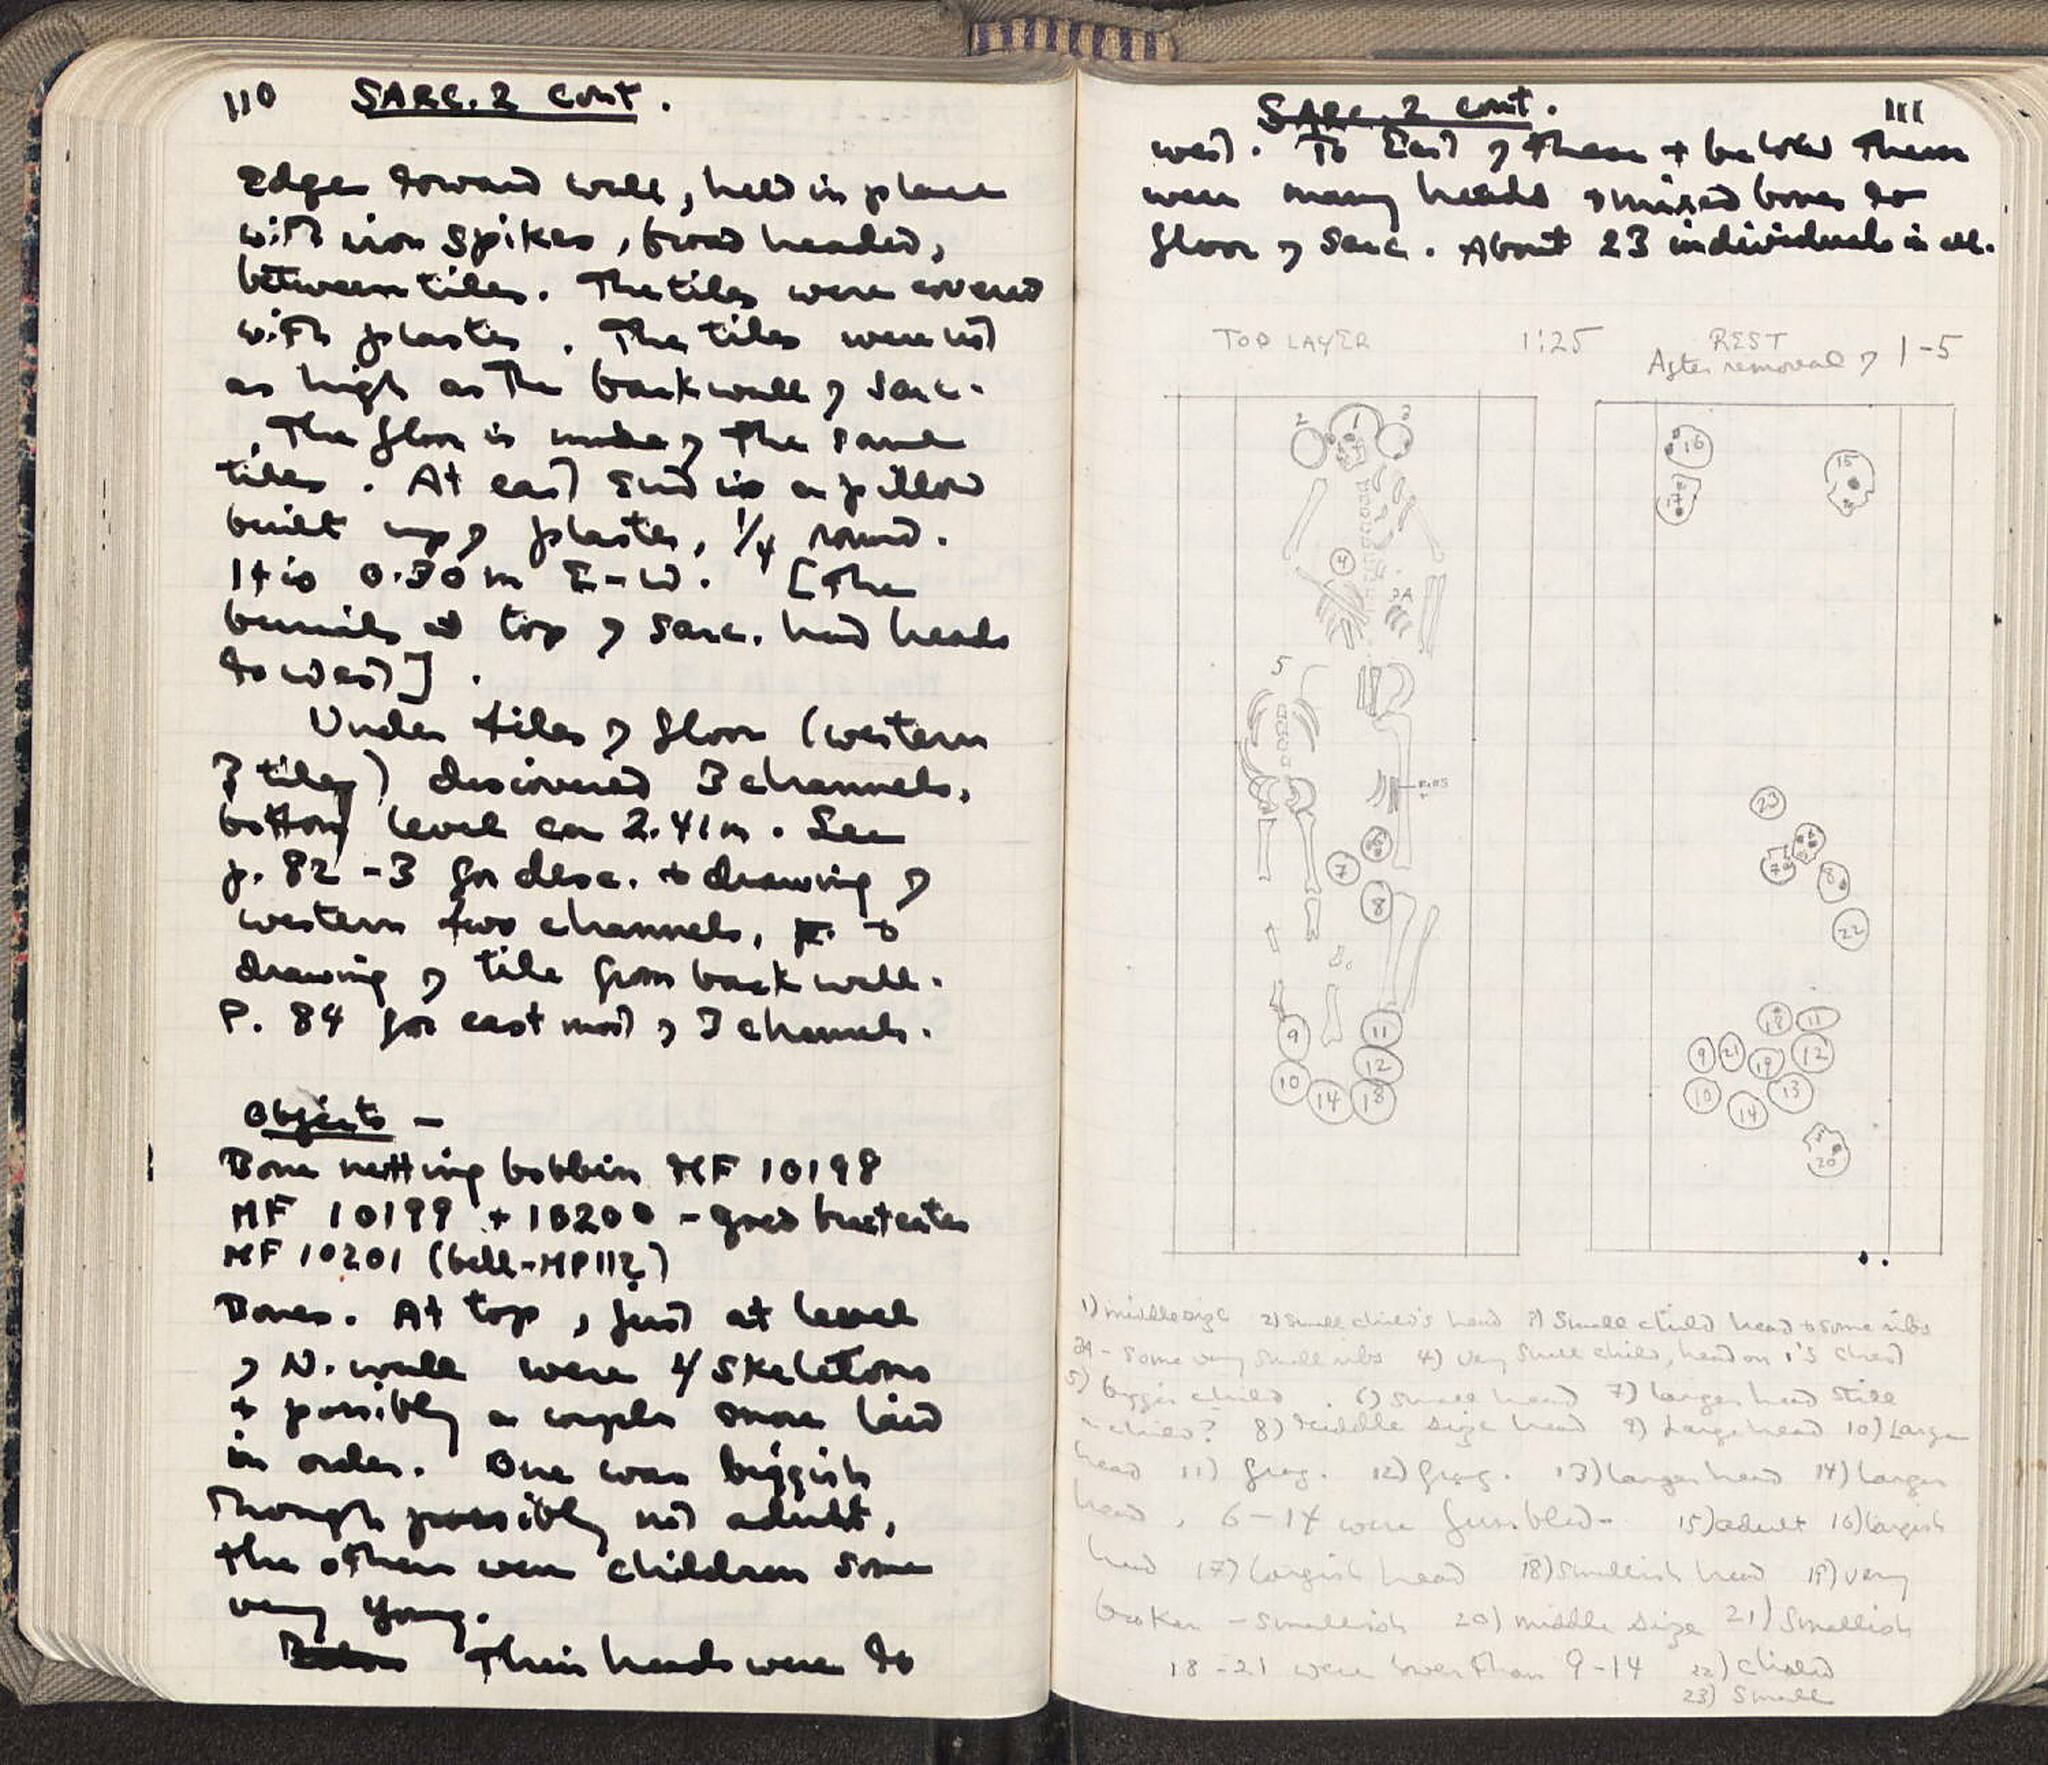 110 SARC. 2 cont.
Edges toward wall, held in place
with iron spikes, broad headed,
between tiles. The tiles were covered
with plaster. The tiles were not
as high as the back wall of Sarc.
The floor is made of the same
tiles. At east end is a pillow
built up of plaster, 1/4 round.
It is 0.30 m E-W. [The
burials at top of Sarc. had heads
to west].
Under tiles of floor (western
3 tiles) discovered 3 channels,
bottom level ca 2.41 m. See
p. 82-3 for desc. + drawing of
western two channels, +
drawing of tile from back wall.
P. 84 for east most of 3 channels.
Objects -
Bone netting bobbin MF 10198
MF 10199 + 10200 - gold bracteates
MF 10201 (bell-MP112)
Bones. At top, just at level
of N. wall were 4 skeletons
+ possibly a couple more laid
in order. One was biggish
though possibly not adult,
the others were children some
very young.
Their heads were to
SARC. 2 cont. 111
west. To East of these + below them
were many heads + mixed bones to
floor of Sarc. About 23 individuals in all.
TOP LAYER 1:25 REST
After removal of 1-5
2 1 3
4
3A
5
RIBS
6
7
8
9 11
10 12
14 13
16 15
17
23
6
7 8
22
18 11
9 21 19 12
10 14 13
20
1) middle size 2) small child's head 3) Small child head + some ribs
3A - some very small ribs 4) very small child, head on 1's chest
5) bigger child. 6) small head 7) larger head still
child? 8) Middle size head 9) Large head 10) Large
head 11) frag. 12) frag. 13) larger head 14) larger
head, 6-14 were jumbled- 15) adult 16) largish
head 17) largish head 18) smallish head 19) very
broken - smallish 20) middle size 21) Smallish
18-21 were lower than 9-14 22) child
23) small